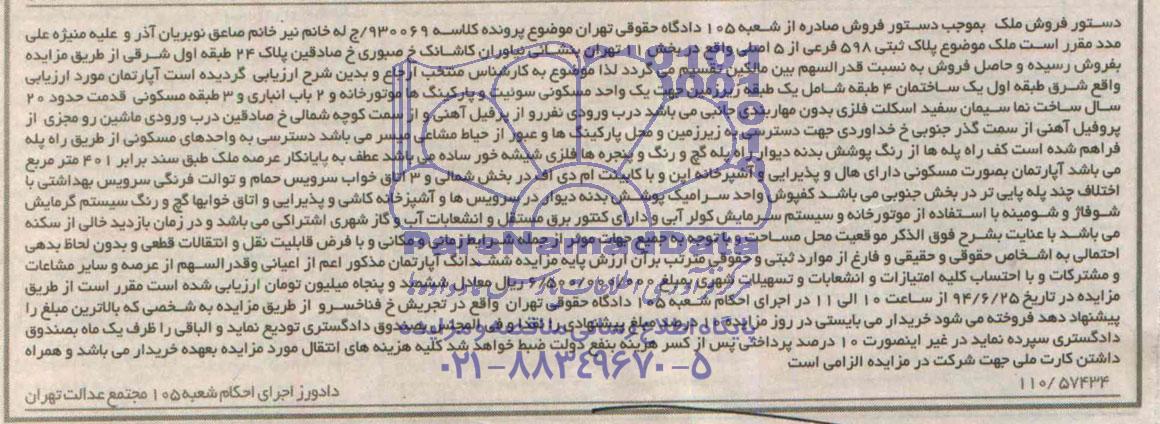 دستور فروش ملک بموجب دستور فروش صادره از شعبه ۱۰۵ دادگاه حقوقی تهران موضوع پرونده کلاسه ۹۳۰۰۶۹/ج له خانم نیر خانم صاعق نوبریان آذر و علیه منیژه علی
مدد مقرر است ملک موضوع پلاک ثبتی ۵۹۸ فرعی از ۵ اصلی واقع در بخش ۱۱ تهران بنشانی نیاوران کاشانک خ صبوری خ صادقین پلاک ۲۴ طبقه اول شرقی از طریق مزایده
بفروش رسیده و حاصل فروش به نسبت قدرالسهم بین مالکین تقسیم می گردد لذا موضوع به کارشناس منتخب ارجاع و بدین شرح ارزیابی گردیده است آپارتمان مورد ارزیابی
واقع شرق طبقه اول یک ساختمان ۴ طبقه شامل یک طبقه زیرزمین جهت یک واحد مسکونی سوئیت و پارکینگ ها موتورخانه و ۲ باب انباری و ۳ طبقه مسکونی قدمت حدود ۲۰
سال ساخت نما سیمان سفید اسکلت فلزی بدون مهاربندی جانبی می باشد درب ورودی نفررو از پرفیل آهنی و از سمت کوچه شمالی خ صادقین درب ورودی ماشین رو مجزی از
پروفیل آهنی از سمت گذر جنوبی خ خداوردی جهت دسترسی به زیرزمین و محل پارکینگ ها و عبور از حیاط مشاعی میسر می باشد دسترسی به واحدهای مسکونی از طریق راه پله
فراهم شده است کف راه پله ها از رنگ پوشش بدنه دیوار راه پله گچ و رنگ و پنجره ها فلزی شیشه خور ساده می باشد عطف به پایانکار عرصه ملک طبق سند برابر ۴۰۱ متر مربع
می باشد آپارتمان بصورت مسکونی دارای هال و پذیرایی و آشپزخانه اپن و با کابینت ام دی اف در بخش شمالی و ۳ اتاق خواب سرویس حمام و توالت فرنگی سرویس بهداشتی با
اختلاف چند پله پایی تر در بخش جنوبی می باشد کفپوش واحد سرامیک پوشش بدنه دیوار در سرویس ها و آشپزخانه کاشی و پذیرایی و اتاق خوابها گچ و رنگ سیستم گرمایش
شوفاژ و شومینه با استفاده از موتورخانه و سیستم سرمایش کولر آبی و دارای کنتور برق مستقل و انشعابات آب و گاز شهری اشتراکی می باشد و در زمان بازدید خالی از سکنه
می باشد با عنایت بشرح فوق الذکر موقعیت محل مساحت و با توجه به جمیع جهات موثر از جمله شرایط زمانی و مکانی و با فرض قابلیت نقل و انتقالات قطعی و بدون لحاظ بدهی
احتمالی به اشخاص حقوقی و حقیقی و فارغ از موارد ثبتی و حقوقی مترتب بران ارزش پایه مزایده ششدانگ آپارتمان مذکور اعم از اعیانی وقدرالسهم از عرصه و سایر مشاعات
و مشترکات و با احتساب کلیه امتیازات و انشعابات و تسهیلات شهری بمبلغ ۶/۵۰۰/۰۰۰/۰۰۰ ریال معادل ششصد و پنجاه میلیون تومان ارزیابی شده است مقرر است از طریق
مزایده در تاریخ ۹۴/۶/۲۵ از ساعت ۱۰ الی ۱۱ در اجرای احکام شعبه ۱۰۵ دادگاه حقوقی تهران واقع در تجریش خ فناخسرو از طریق مزایده به شخصی که بالاترین مبلغ را
پیشنهاد دهد فروخته می شود خریدار می بایستی در روز مزایده ۱۰ درصد مبلغ پیشنهادی را نقدا و فی المجلس بصندوق دادگستری تودیع نماید و الباقی را ظرف یک ماه بصندوق
دادگستری سپرده نماید در غیر اینصورت ۱۰ درصد پرداختی پس از کسر هزینه بنفع دولت ضبط خواهد شد کلیه هزینه های انتقال مورد مزایده بعهده خریدار می باشد و همراه
داشتن کارت ملی جهت شرکت در مزایده الزامی است
۱۱۰/۵۷۴۳۴
دادورز اجرای احکام شعبه ۱۰۵ مجتمع عدالت تهران
ParsNamadData
پایگاه اطلاع رسانی مناقصه و مزایده
۰۲۱-۸۸۳۴۹۶۷۰-۵